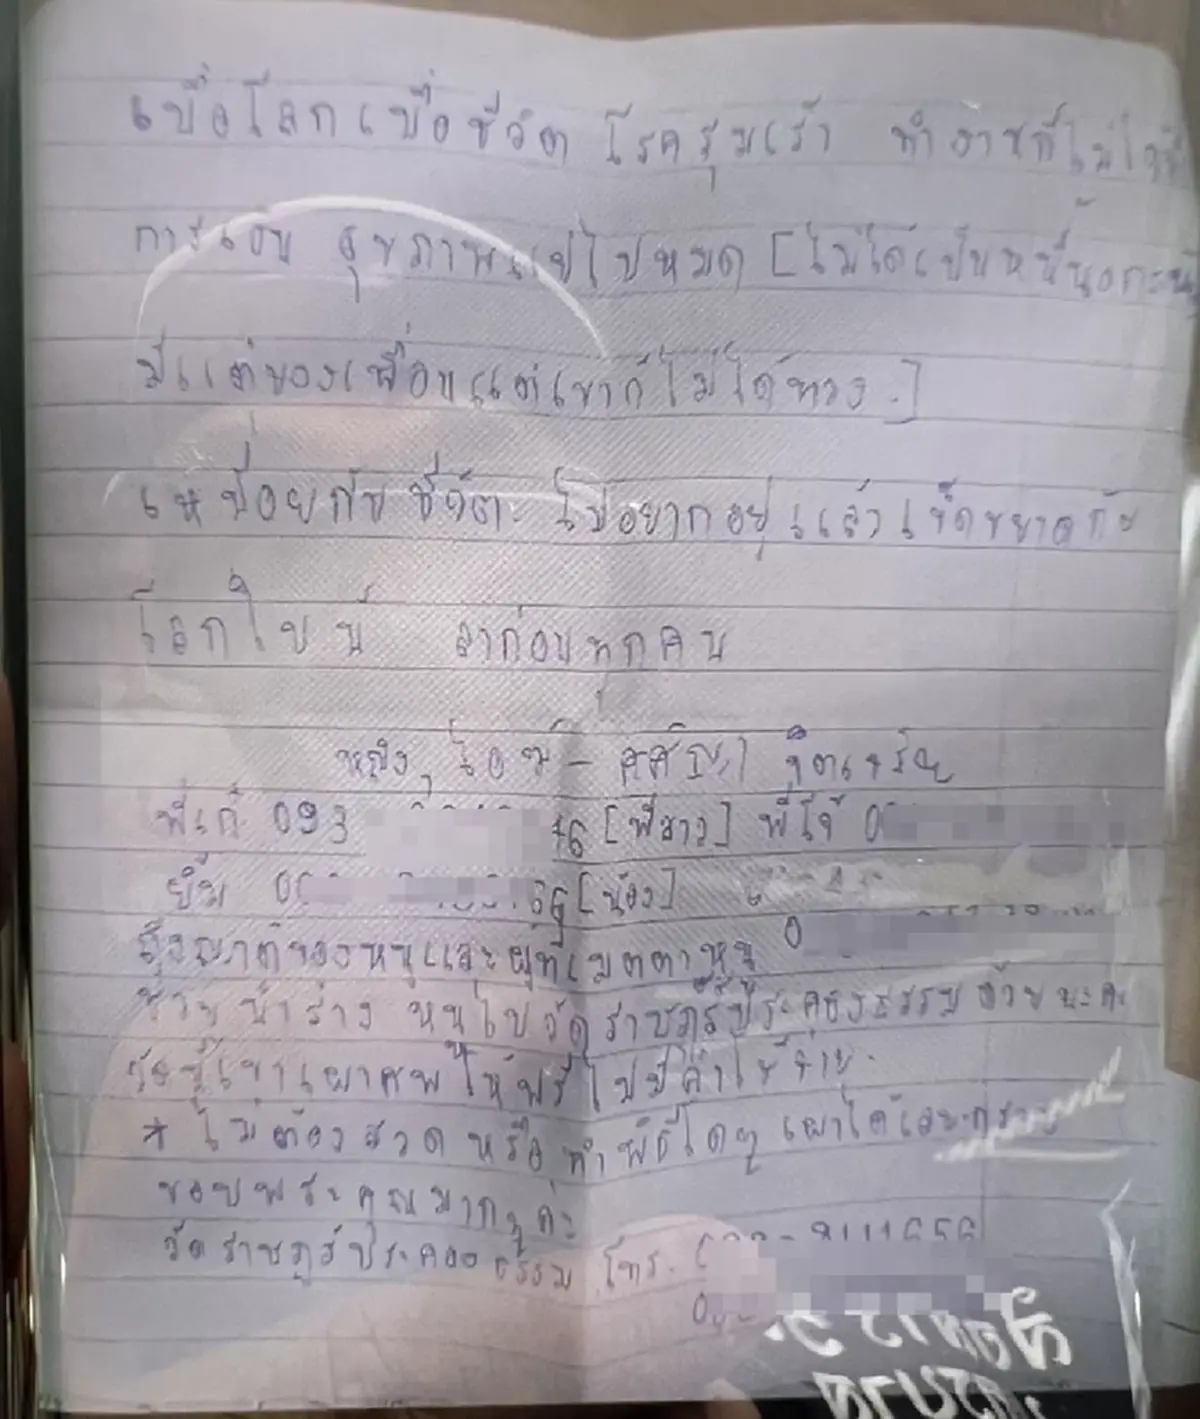 เบื่อโลกเบื่อชีวิต โรคซึมเศร้า ทำงานก็ไม่ไหว
การเงิน สุขภาพแย่ไปหมด [ไม่ได้เป็นหนี้นอกระบบ
มีแต่ของเพื่อนแต่เขาก็ไม่ได้ทวง.]
เหนื่อยกับชีวิตะ ไม่อยากอยู่แล้วเข็ดขยาดกับ
โลกใบนี้ ลาก่อนทุกคน
หญิง,
093 46 [พี่สาว] 0
ยิ้ม 0 66 [น้อง]
ถึงญาติของหนูและผู้ที่เมตตาหนู 0
ช่วยนำร่าง หนูไปวัดราษฎร์ประคองธรรม ด้วยนะคะ
วัดนี้เขาเผาศพให้ฟรีไม่มีค่าใช้จ่าย.
* ไม่ต้องสวด หรือทำพิธีใดๆ เผาได้เลย
ขอบพระคุณมากๆค่ะ
วัดราษฎร์ประคองธรรม โทร.